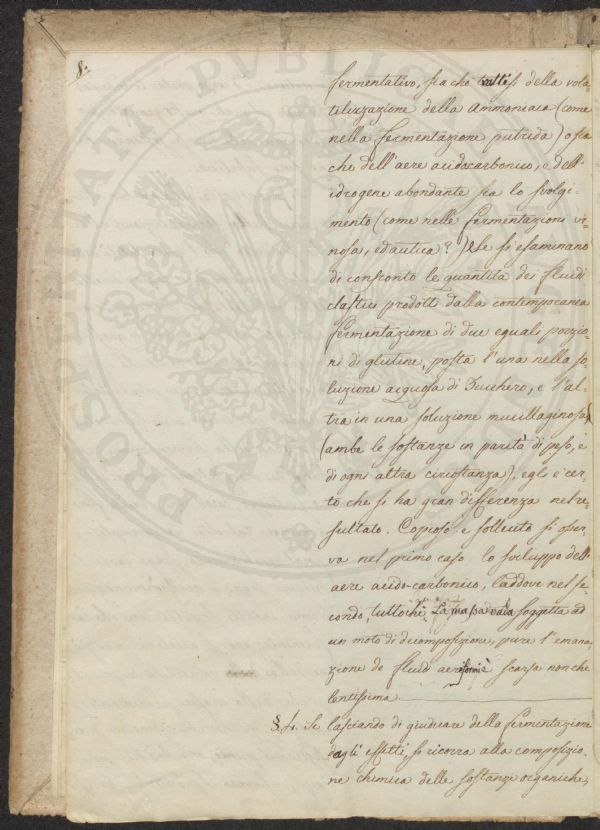 8.
fermentativo, sia che trattisi della vola-
tilizzazione della Ammoniaca (come
nella fermentazione putrida) o sia
che dell'aere acido carbonico, e dell'
idrogene abondante sia lo svolgi-
mento (come nelle fermentazioni vi-
nosa, ed ?) Se si esaminano
di confronto le quantità dei fluidi
elastici prodotti dalla contemporanea
fermentazione di due eguali porzio-
ni di glutine, posta l'una nella so-
luzione acquosa di Zucchero, e l'al-
tra in una soluzione mucillaginosa
(ambe le sostanze in parità di peso, e
di ogni altra circostanza), egli è cer-
to che si ha gran differenza nel re-
sultato. Copioso e sollecito si osser-
va nel primo caso lo sviluppo dell'
aere acido-carbonico, laddove nel se-
condo, tuttochè La massa soggetta ad
un moto di decomposizione, pure l'emana-
zione de' fluidi aeriformi è scarsa non che
lentissima
§. 4. Se lasciando di giudicare della fermentazione
dagli effetti, si ricorra alla composizio-
ne chimica delle sostanze organiche,
PROSPERITATI PUBLICAE